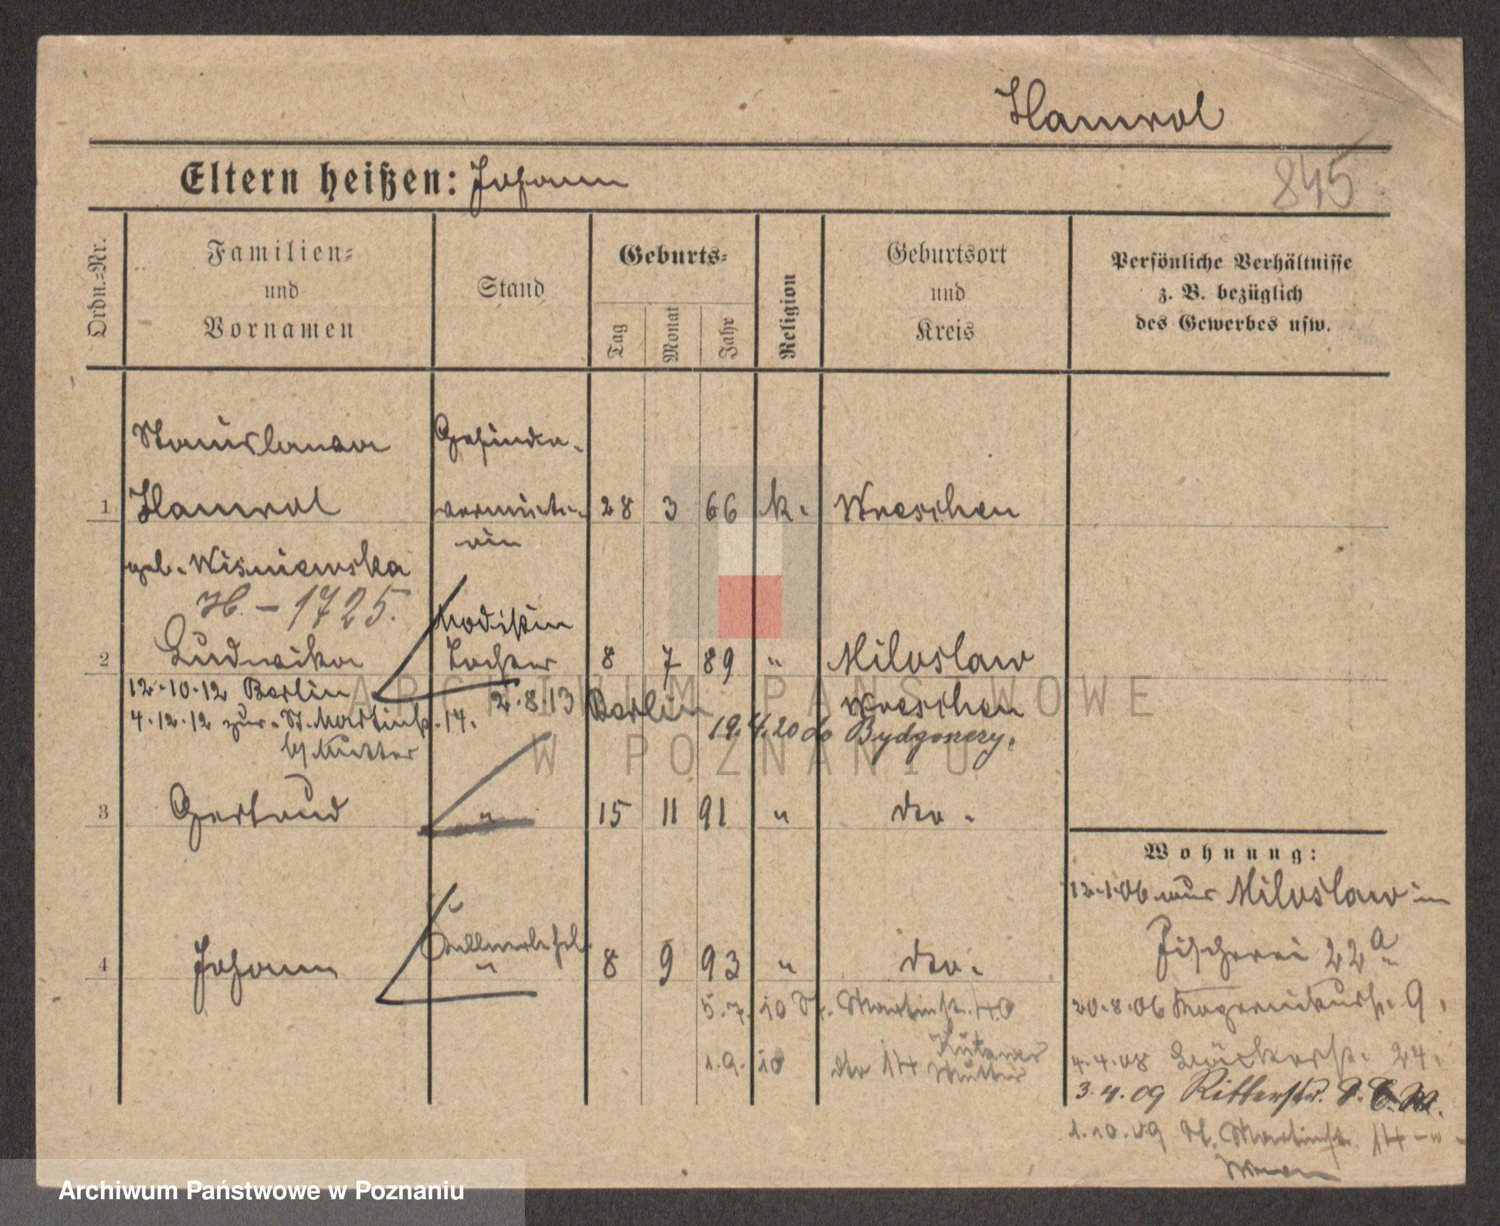 Hamrol
845
Eltern heißen: Johann
Ordn.=Nr.
Familien=
und
Vornamen
Stand
Geburts=
Tag
Monat
Jahr
Religion
Geburtsort
und
Kreis
Persönliche Verhältnisse
z. B. bezüglich
des Gewerbes usw.
Stanislawa Gesinde-
1 Hamrol vermiete- 28 3 66 k. Wreschen
rin
geb. Wisniewska
H. – 1725.
Modistin
2 Ludwika Tochter 8 7 89 " Miloslaw
12.10.12 Berlin 2.8.13 Berlin Wreschen
4.12.12 zur. St. Martinstr. 14. 19.4.20 do Bydgoszczy.
b/ Mutter
3 Gertrud " 15 11 91 " dto.
Wohnung:
12.1.06 aus Miloslaw in
Fischerei 22a
4 Johann " 8 9 93 " dto.
5.7.10 St. Martinstr. 40
20.8.06 9.
1.9.10 dto 14
Mutter
4.4.08 24.
3.4.09 Ritterstr.
1.10.09 St. Martinstr. 14
ARCHIWUM PAŃSTWOWE
W POZNANIU
Archiwum Państwowe w Poznaniu